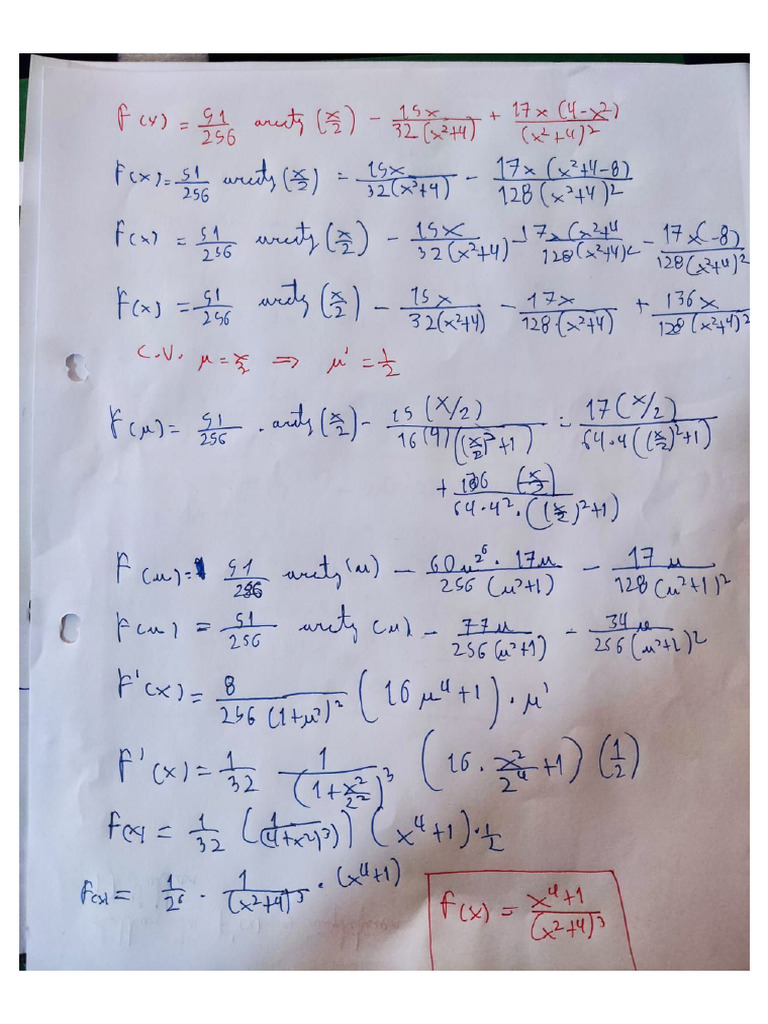 F(x) = 51/256 arctg (x/2) - 15x/32(x²+4) + 17x(4-x²)/(x²+4)²
F(x) = 51/256 arctg (x/2) = 15x/32(x²+4) - 17x(x²+4-8)/128(x²+4)²
F(x) = 51/256 arctg (x/2) - 15x/32(x²+4) - 17x(x²+4/128(x²+4)² - 17x(-8)/128(x²+4)²
F(x) = 51/256 arctg (x/2) - 15x/32(x²+4) - 17x/128·(x²+4) + 136x/128(x²+4)²
C.V. μ = x/2 ⇒ μ' = 1/2
F(μ) = 51/256 · arctg (x/2) - 15(x/2)/16(4)((x/2)²+1) - 17(x/2)/64·4((x/2)²+1)
+ 136 (x/2)/64·4²·((x/2)²+1)
F(μ) = 51/256 arctg(μ) - 60μ · 17μ/256(μ²+1) - 17μ/128(μ²+1)²
F(μ) = 51/256 arctg(μ) - 77μ/256(μ²+1) - 34μ/256(μ²+1)²
F'(x) = 8/256(1+μ²)² (16μ⁴+1)·μ'
F'(x) = 1/32 1/(1+x²/2²)³ (16·x²/2⁴+1)(1/2)
F(x) = 1/32 (1/(4+x²)³)(x⁴+1)·1/2
F(x) = 1/2⁶ · 1/(x²+4)³ · (x⁴+1)
f(x) = x⁴+1/(x²+4)³